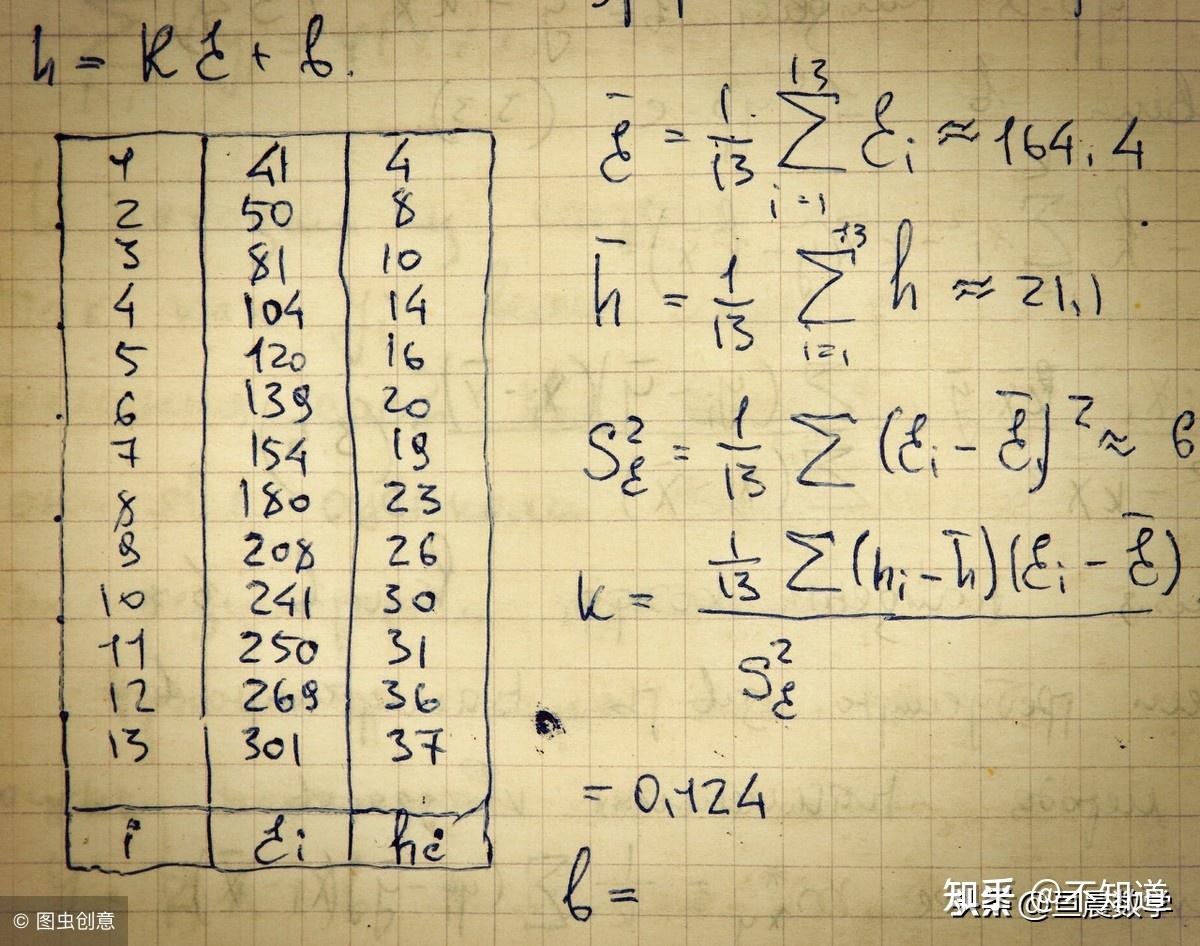 h = kξ + b.
1 41 4
2 50 8
3 81 10
4 104 14
5 120 16
6 139 20
7 154 19
8 180 23
9 208 26
10 241 30
11 250 31
12 269 36
13 301 37
i ξi hi
ξ̄ = 1/13 13∑i=1 ξi ≈ 164.4
h̄ = 1/13 13∑i=1 h ≈ 21,1
S²ξ = 1/13 ∑ (ξi - ξ̄)² ≈ 6
k = 1/13 ∑ (hi - h̄)(ξi - ξ̄) / S²ξ
= 0,124
b =
© 图虫创意
知乎 @不知道
头条 @巨晨数学